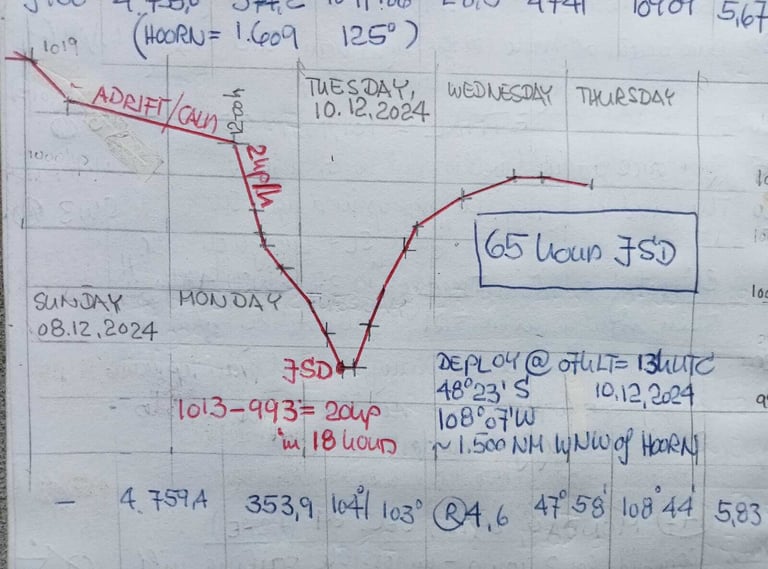 4741
5,67
(HOORN = 1.609 125°)
1019
ADRIFT/CALM
TUESDAY,
10.12.2024
WEDNESDAY
THURSDAY
65 hour JSD
SUNDAY
08.12.2024
MONDAY
JSD
1013-993 = 20hp
in 18 hours
DEPLOY @ 07hLT= 13hUTC
48°23' S 10.12.2024
108°07'W
~1.500 NM WNW of HOORN
- 4.759,4 353,9 104°/ 103° (R) 4,6 47°58' 108°44' 5,83